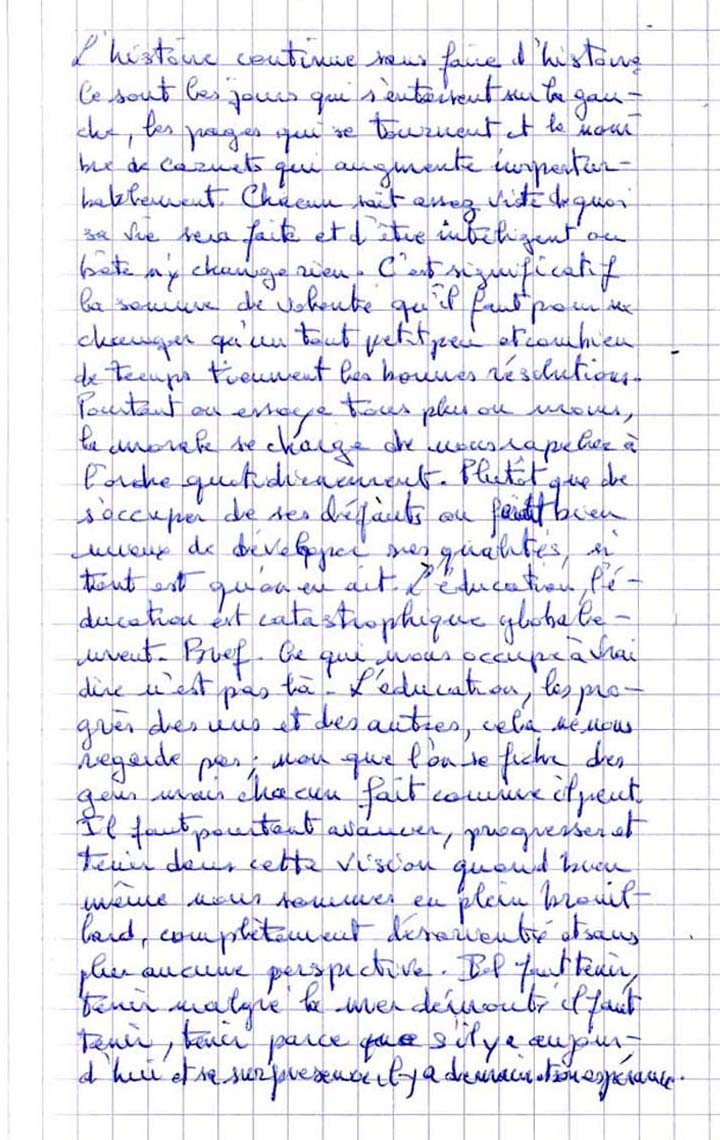 L'histoire continue sans faire d'histoire
Ce sont les jours qui s'entassent sur la gau-
che, les pages qui se tournent et le nom
bre de carnets qui augmente impertur-
bablement. Chacun sait assez vite de quoi
sa vie sera faite et d'être intelligent ou
bête n'y change rien. C'est significatif
la somme de volonté qu'il faut pour ne
changer qu'un tout petit peu et combien
de temps tiennent les bonnes résolutions.
Pourtant on essaye tous plus ou moins,
la morale se charge de nous rapeler à
l'ordre quotidiennement. Plutôt que de
s'occuper de ses défauts on fait bien
mieux de développer ses qualités, si
tant est qu'on en ait. L'éducation, l'é-
ducation est catastrophique globale-
ment. Bref. Ce qui nous occupe à vrai
dire n'est pas là. L'éducation, les pro-
grès des uns et des autres, cela ne nous
regarde pas; non que l'on se fiche des
gens mais chacun fait comme il peut.
Il faut pourtant avancer, progresser et
tenir dans cette vision quand bien
même nous sommes en plein brouil-
lard, complètement désorienté et sans
plus aucune perspective. Il faut tenir,
tenir malgré la mer démonté il faut
tenir, tenir parce que s'il y a aujour-
d'hui et sa il y a demain et son espérance.